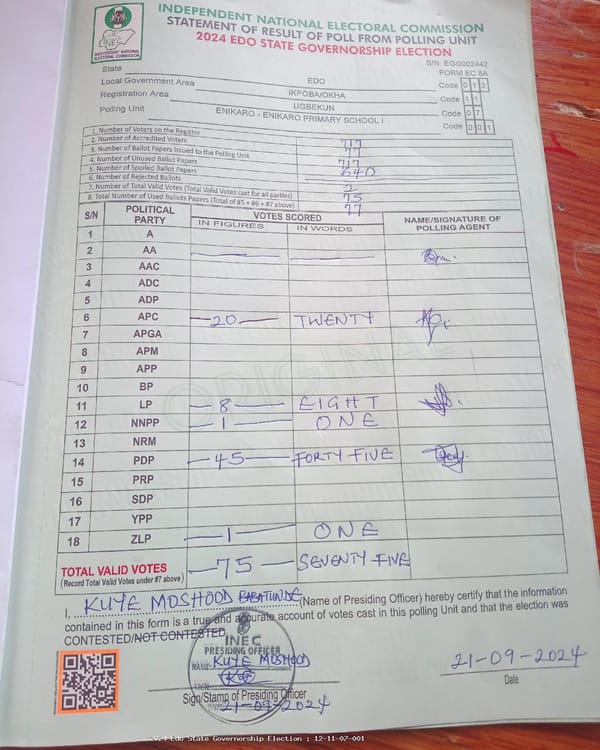 INDEPENDENT NATIONAL ELECTORAL COMMISSION
STATEMENT OF RESULT OF POLL FROM POLLING UNIT
2024 EDO STATE GOVERNORSHIP ELECTION
INEC
INDEPENDENT NATIONAL ELECTORAL COMMISSION
S/N: EG/0002442
FORM EC 8A
State EDO Code 0 1 2
Local Government Area IKPOBA/OKHA Code 1 1
Registration Area UGBEKUN Code 0 7
Polling Unit ENIKARO - ENIKARO PRIMARY SCHOOL I Code 0 0 1
1. Number of Voters on the Register 717
2. Number of Accredited Voters 77
3. Number of Ballot Papers Issued to the Polling Unit 717
4. Number of Unused Ballot Papers 640
5. Number of Spoiled Ballot Papers
6. Number of Rejected Ballots 2
7. Number of Total Valid Votes (Total Valid Votes cast for all parties) 75
8. Total Number of Used Ballots Papers (Total of #5 + #6 + #7 above) 77
S/N POLITICAL PARTY VOTES SCORED NAME/SIGNATURE OF POLLING AGENT
IN FIGURES IN WORDS
1 A
2 AA
3 AAC
4 ADC
5 ADP
6 APC 20 TWENTY
7 APGA
8 APM
9 APP
10 BP
11 LP 8 EIGHT
12 NNPP 1 ONE
13 NRM
14 PDP 45 FORTY FIVE
15 PRP
16 SDP
17 YPP
18 ZLP 1 ONE
ORIGINAL
TOTAL VALID VOTES 75 SEVENTY FIVE
(Record Total Valid Votes under #7 above)
I, KUYE MOSHOOD BABATUNDE (Name of Presiding Officer) hereby certify that the information
contained in this form is a true and accurate account of votes cast in this polling Unit and that the election was
CONTESTED/NOT CONTESTED
INEC
PRESIDING OFFICER
NAME: KUYE MOSHOOD
SIGN
Sign/Stamp of Presiding Officer
21-09-2024
21-09-2024
Date
2024 Edo State Governorship Election : 12-11-07-001